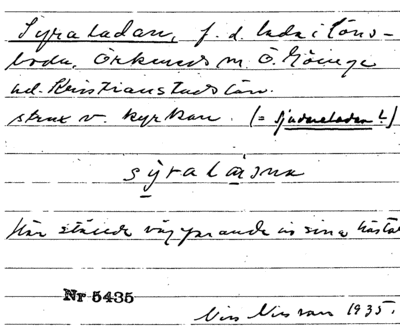 Syraladan, f. d. lada i Löns-
boda, Örkeneds sn Ö. Göinge
hd. Kristianstads län.
strax v. kyrkan. (= Sjudereladan?)
sýralàjsna
Här stående vägfarande in sina hästar
Nr 5435
Nils Nilsson 1935.